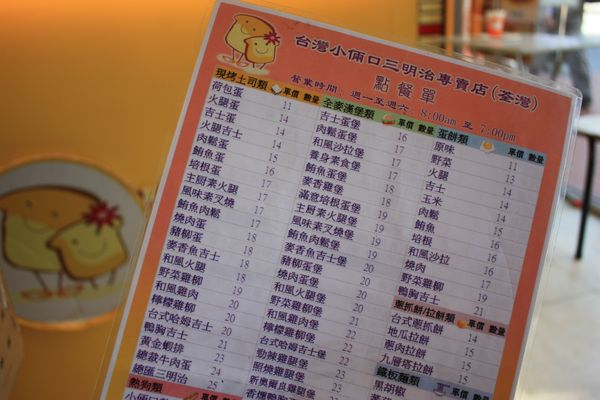 台灣小倆口三明治專賣店(荃灣)
點餐單
營業時間 週一至週六 8:00am 至 7:00pm
現烤土司類 單價 數量
荷包蛋 11
吉士蛋 14
火腿蛋 14
火腿吉士 14
肉鬆蛋 14
鮪魚蛋 17
培根蛋 16
主厨素火腿 17
風味素叉燒 17
鮪魚肉鬆 17
燒肉蛋 17
豬柳蛋 18
麥香雞吉士 18
和風火腿 18
野菜雞柳 19
和風雞肉 20
檸檬雞柳 20
台式哈姆吉士 20
鴨胸吉士 21
黃金蝦排 22
總裁牛肉蛋 24
總匯三明治 25
熱狗類
小倆口
全麥漢堡類 單價 數量
吉士蛋堡 16
肉鬆蛋堡 17
和風沙拉堡 17
養身素食堡 17
鮪魚蛋堡 17
麥香雞堡 18
滿意培根蛋堡 19
主厨火腿堡 19
風味素叉燒堡 19
鮪魚肉鬆堡 19
豬柳蛋堡 20
麥香雞吉士堡 20
燒肉蛋堡 20
和風火腿堡 20
野菜雞柳堡 21
和風雞肉堡 21
檸檬雞柳堡 22
台式哈姆吉士堡 22
勁辣雞腿堡 23
照燒雞腿堡 24
新奧爾良雞腿堡 23
香燻鴨胸堡
蛋餅類 單價 數量
原味 11
野菜 13
火腿 14
吉士 14
玉米 14
肉鬆 14
鮪魚 15
培根 16
和風沙拉 16
燒肉 16
野菜雞柳 19
鴨胸吉士 21
蔥抓餅/拉餅類 單價 數量
台式蔥抓餅 14
地瓜拉餅 14
蔥肉拉餅 15
九層塔拉餅 15
鐵板麵類 單價 數量
黑胡椒